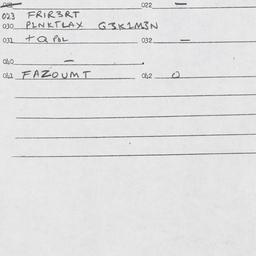 022 —
023 FRIR3RT
030 PLNKTLAX G3K1M3N
031 +Q POL 032 —
060 —
061 FAZOUMT 062 O